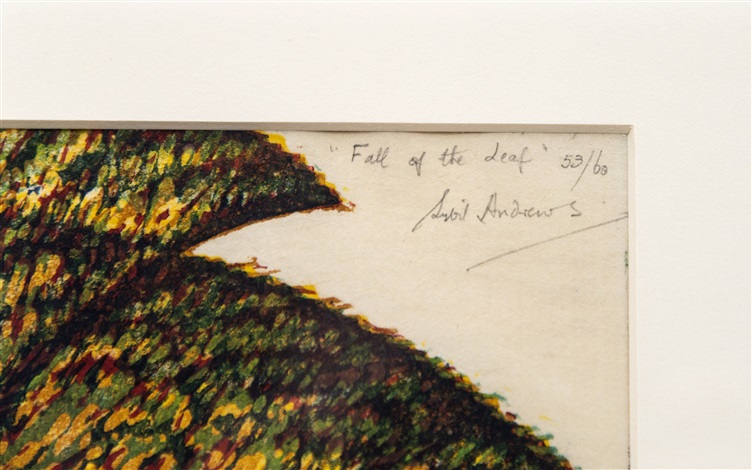 "Fall of the Leaf" 53/60
Sybil Andrews